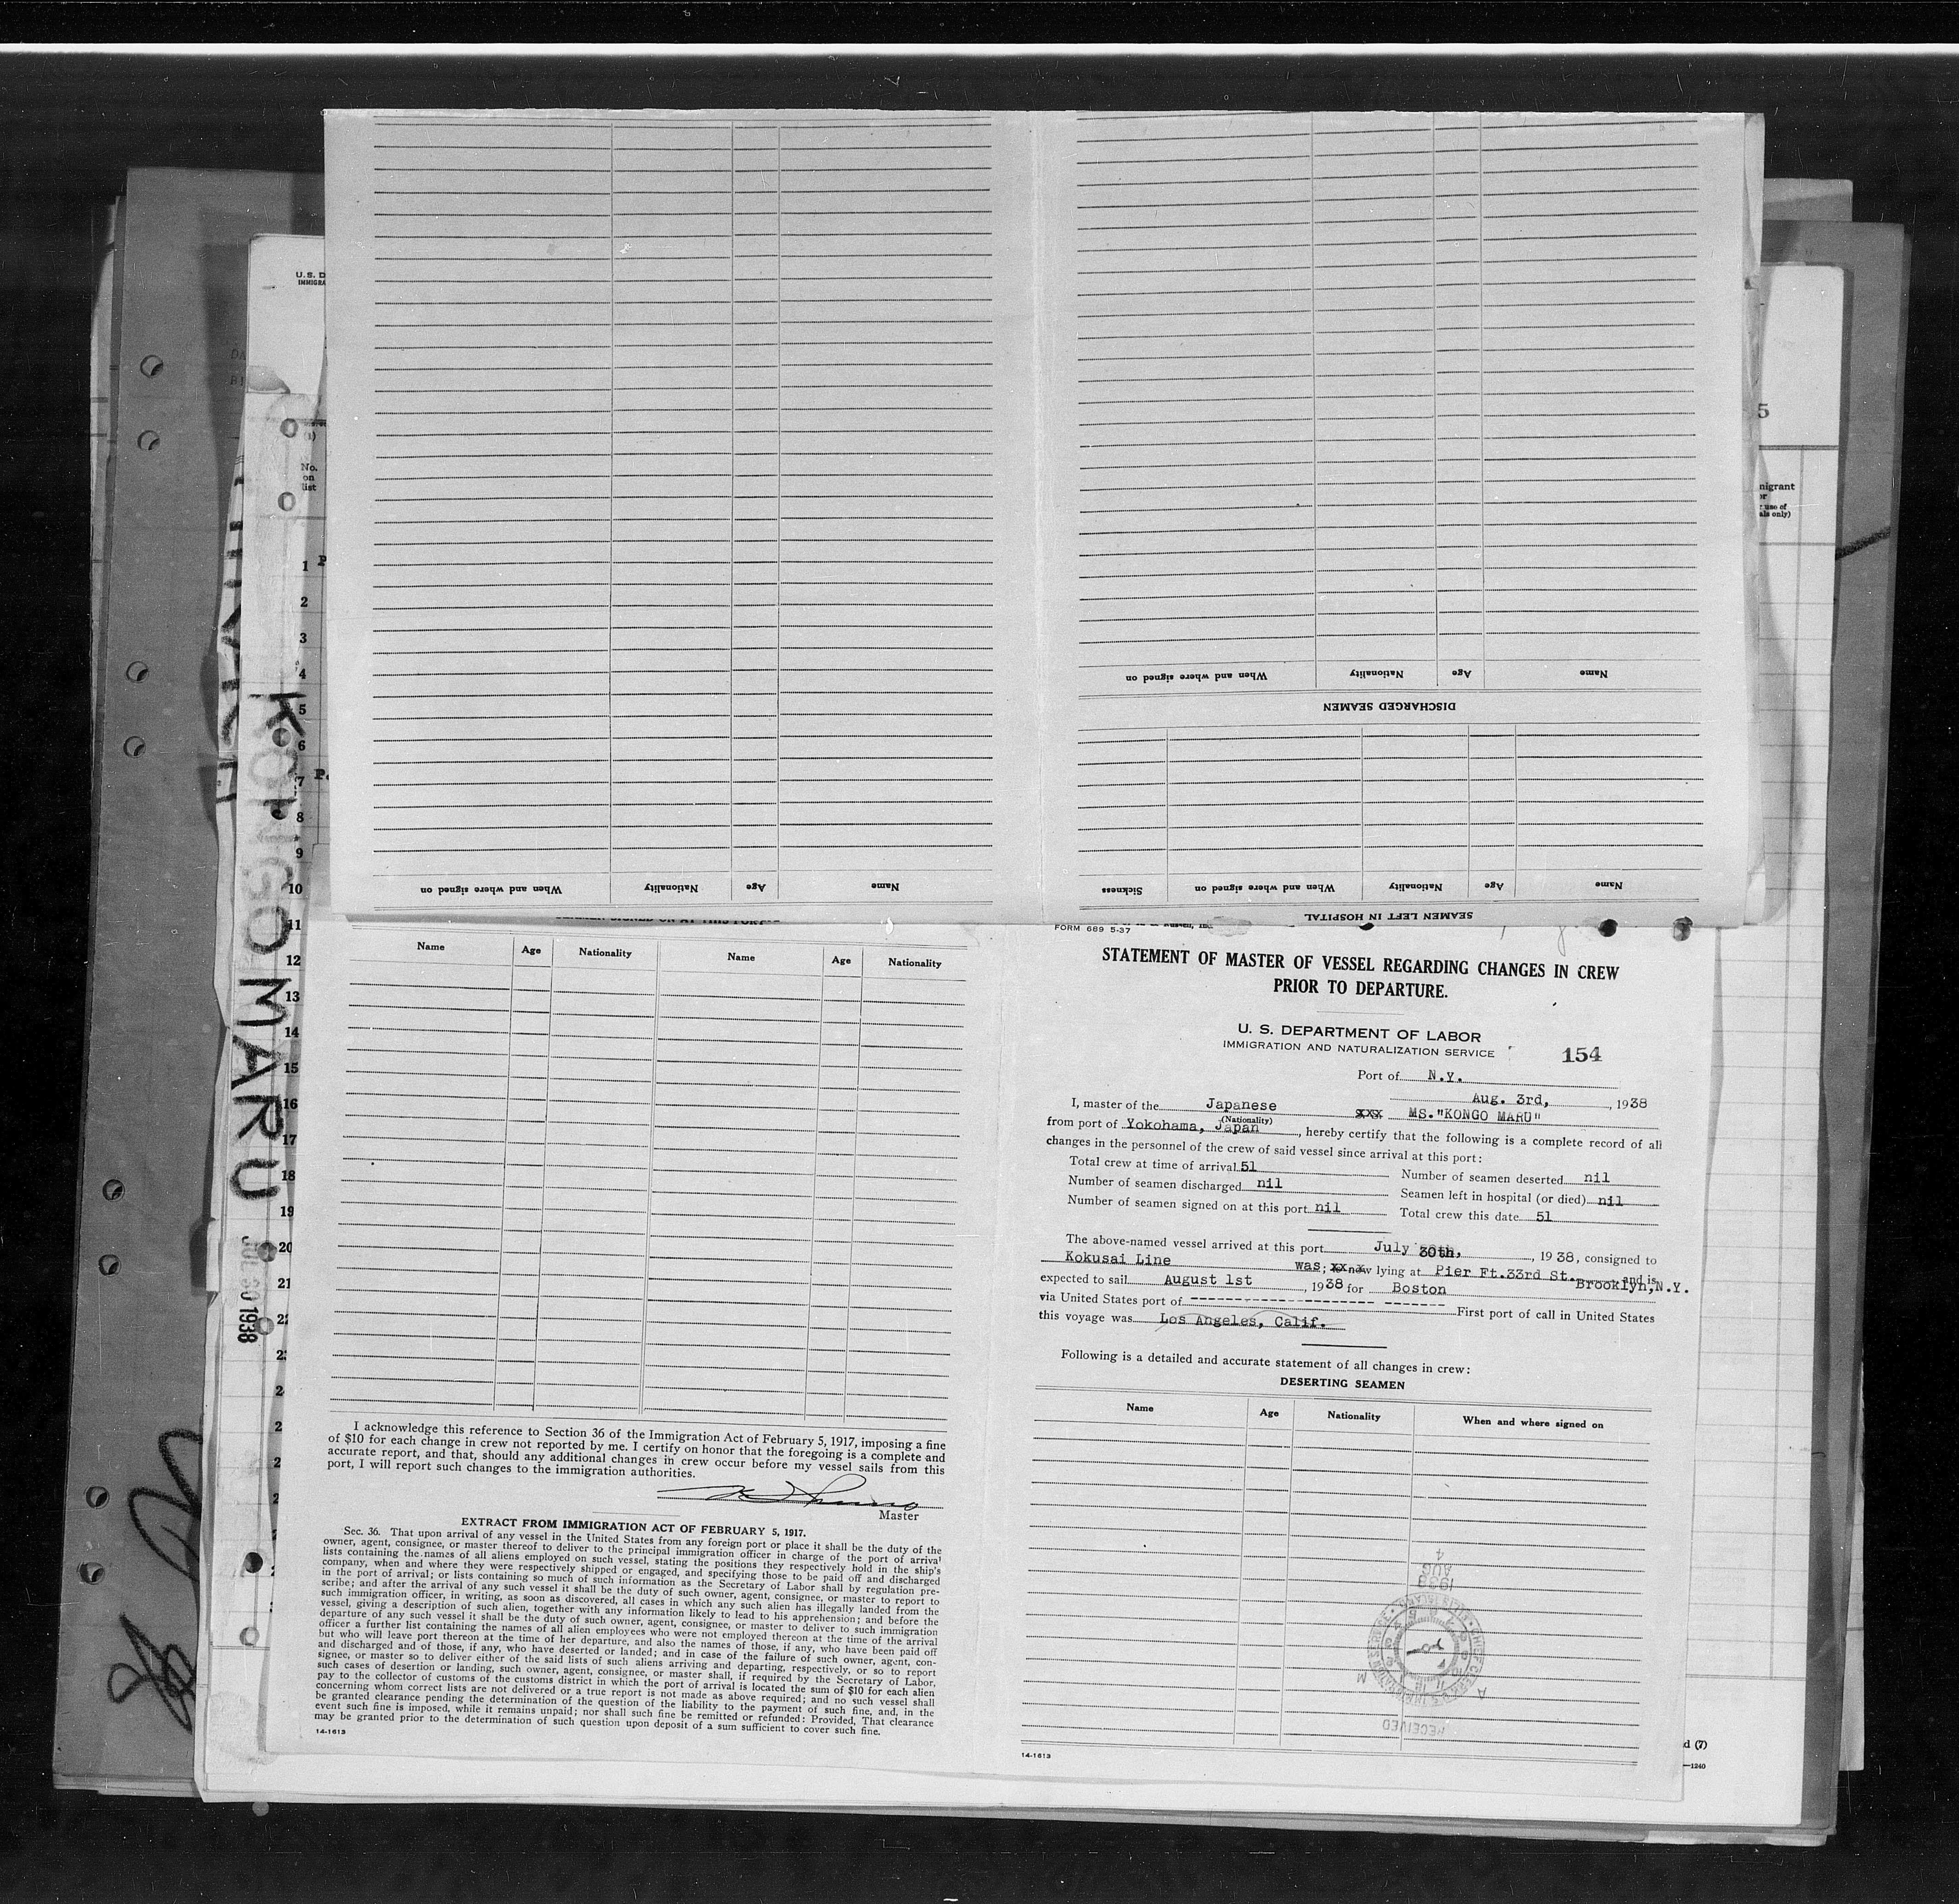 U. S. D
IMMIGRA
(1)
No.
on
list
1
2
3
4
5
6
7
8
9
10
11
12
13
14
15
16
17
18
19
20
21
KONGO MARU JUL 30 1938
5
migrant
or
use of
als only)
When and where signed on Nationality Age Name
DISCHARGED SEAMEN
Sickness When and where signed on Nationality Age Name
SEAMEN LEFT IN HOSPITAL
When and where signed on Nationality Age Name
SEAMEN SIGNED ON AT THIS PORT
Name Age Nationality Name Age Nationality
I acknowledge this reference to Section 36 of the Immigration Act of February 5, 1917, imposing a fine
of $10 for each change in crew not reported by me. I certify on honor that the foregoing is a complete and
accurate report, and that, should any additional changes in crew occur before my vessel sails from this
port, I will report such changes to the immigration authorities.
Master
EXTRACT FROM IMMIGRATION ACT OF FEBRUARY 5, 1917.
Sec. 36. That upon arrival of any vessel in the United States from any foreign port or place it shall be the duty of the
owner, agent, consignee, or master thereof to deliver to the principal immigration officer in charge of the port of arrival
lists containing the names of all aliens employed on such vessel, stating the positions they respectively hold in the ship's
company, when and where they were respectively shipped or engaged, and specifying those to be paid off and discharged
in the port of arrival; or lists containing so much of such information as the Secretary of Labor shall by regulation pre-
scribe; and after the arrival of any such vessel it shall be the duty of such owner, agent, consignee, or master to report to
such immigration officer, in writing, as soon as discovered, all cases in which any such alien has illegally landed from the
vessel, giving a description of such alien, together with any information likely to lead to his apprehension; and before the
departure of any such vessel it shall be the duty of such owner, agent, consignee, or master to deliver to such immigration
officer a further list containing the names of all alien employees who were not employed thereon at the time of the arrival
but who will leave port thereon at the time of her departure, and also the names of those, if any, who have been paid off
and discharged and of those, if any, who have deserted or landed; and in case of the failure of such owner, agent, con-
signee, or master so to deliver either of the said lists of such aliens arriving and departing, respectively, or so to report
such cases of desertion or landing, such owner, agent, consignee, or master shall, if required by the Secretary of Labor,
pay to the collector of customs of the customs district in which the port of arrival is located the sum of $10 for each alien
concerning whom correct lists are not delivered or a true report is not made as above required; and no such vessel shall
be granted clearance pending the determination of the question of the liability to the payment of such fine, and, in the
event such fine is imposed, while it remains unpaid; nor shall such fine be remitted or refunded: Provided, That clearance
may be granted prior to the determination of such question upon deposit of a sum sufficient to cover such fine.
14-1613
FORM 689 5-37
STATEMENT OF MASTER OF VESSEL REGARDING CHANGES IN CREW
PRIOR TO DEPARTURE.
U. S. DEPARTMENT OF LABOR
IMMIGRATION AND NATURALIZATION SERVICE 154
Port of N.Y.
Aug. 3rd, , 1938
I, master of the Japanese xxx MS."KONGO MARU"
(Nationality)
from port of Yokohama, Japan , hereby certify that the following is a complete record of all
changes in the personnel of the crew of said vessel since arrival at this port:
Total crew at time of arrival 51 Number of seamen deserted nil
Number of seamen discharged nil Seamen left in hospital (or died) nil
Number of seamen signed on at this port nil Total crew this date 51
The above-named vessel arrived at this port July 30th, , 1938, consigned to
Kokusai Line was; xx now lying at Pier Ft.33rd St. Brooklyn,N.Y. and is
expected to sail August 1st , 1938 for Boston
via United States port of First port of call in United States
this voyage was Los Angeles, Calif.
Following is a detailed and accurate statement of all changes in crew:
DESERTING SEAMEN
Name Age Nationality When and where signed on
1938
AUG
4
RECEIVED
14-1613
d (7)
—1240